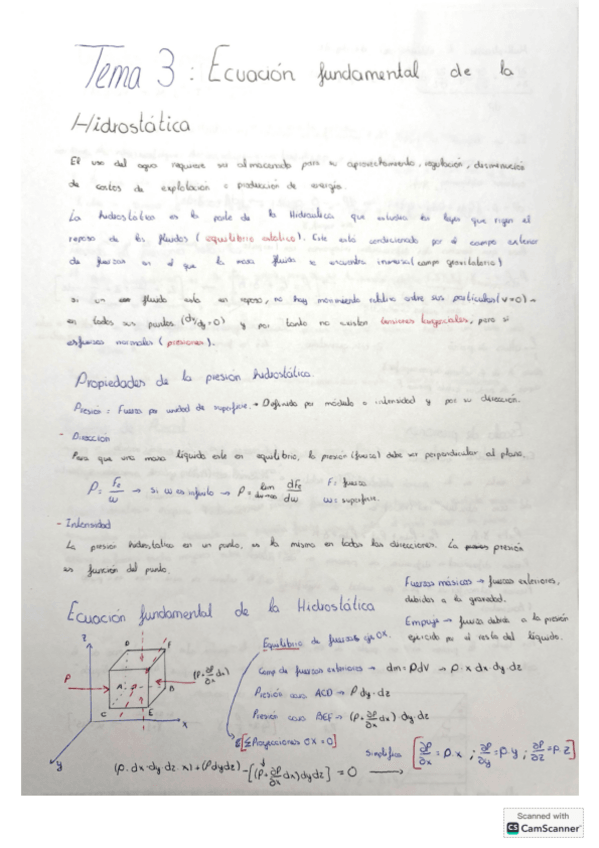 Tema 3 : Ecuación fundamental de la
Hidrostática
El uso del agua requiere su almacenado para su aprovechamiento, regulación, disminución
de costos de explotación o producción de energía.
La hidrostática es la parte de la Hidraulica que estudia las leyes que rigen el
reposo de los fluidos (equilibrio estático). Este está condicionado por el campo exterior
de fuerzas en el que la masa fluida se encuentra inmersa (campo gravitatorio)
si un fluido esta en reposo, no hay movimiento relativo entre sus particulas (v=0)
en todos sus puntos (dv/dy=0) y por tanto no existen tensiones tangenciales, pero si
esfuerzos normales (presiones).
Propiedades de la presión hidrostática.
Presión = Fuerza por unidad de superficie. → Definida por módulo o intensidad y por su dirección.
- Dirección
Para que una masa líquida este en equilibrio, la presión (fuerza) debe ser perpendicular al plano.
P = FE/ω → si ω es infinito → P = lim dFE/dω F: fuerza
ω = superficie.
- Intensidad
La presión hidrostática en un punto, es la misma en todas las direcciones. La presión
es función del punto.
Fuerzas másicas → fuerzas exteriores,
debidas a la gravedad.
Empuje → fuerza debida a la presión
ejercida por el resto del líquido.
Ecuación fundamental de la Hidrostática
Z
D F
P
A
B
(P+∂P/∂x dx)
C E
x
y
Equilibrio de fuerzas eje OX.
Comp de fuerzas exteriores → dm = ρdV → ρ·x dx dy dz
Presión cara ACD → P dy·dz
Presión cara BEF → (P+∂P/∂x dx)·dy·dz
[Σ Proyecciones OX = 0]
(ρ·dx·dy·dz·x)+(Pdydz)-[(P+∂P/∂x dx)dydz] = 0 →
Simplifica [∂P/∂x = ρ·x ; ∂P/∂y = ρ·y ; ∂P/∂z = ρ·z]
Scanned with
CS CamScanner